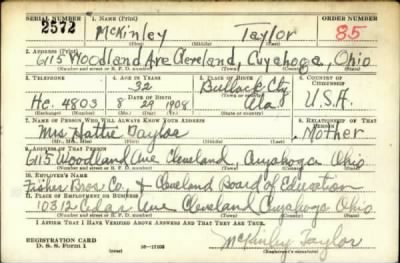 SERIAL NUMBER 1. NAME (Print) ORDER NUMBER
2572 McKinley Taylor 85
(First) (Middle) (Last)
2. ADDRESS (Print)
6115 Woodland Ave Cleveland, Cuyahoga, Ohio
(Number and street or R. F. D. number) (Town) (County) (State)
3. TELEPHONE 4. AGE IN YEARS 5. PLACE OF BIRTH 6. COUNTRY OF CITIZENSHIP
32 Bullock Cty
(Town or county)
He. 4803 8 29 1908 Ala U.S.A.
(Exchange) (No.) (Mo.) (Day) (Yr.) (State or country)
7. NAME OF PERSON WHO WILL ALWAYS KNOW YOUR ADDRESS 8. RELATIONSHIP OF THAT PERSON
Mrs Hattie Taylor Mother
(Mr., Mrs., Miss) (First) (Middle) (Last)
9. ADDRESS OF THAT PERSON
6115 Woodland Ave Cleveland, Cuyahoga Ohio
(Number and street or R. F. D. number) (Town) (County) (State)
10. EMPLOYER'S NAME
Fisher Bros. Co. & Cleveland Board of Education
11. PLACE OF EMPLOYMENT OR BUSINESS
10312 Cedar Ave Cleveland Cuyahoga Ohio
(Number and street or R. F. D. number) (Town) (County) (State)
I AFFIRM THAT I HAVE VERIFIED ABOVE ANSWERS AND THAT THEY ARE TRUE.
REGISTRATION CARD McKinley Taylor
D. S. S. Form 1 16—17105 (Registrant's signature)